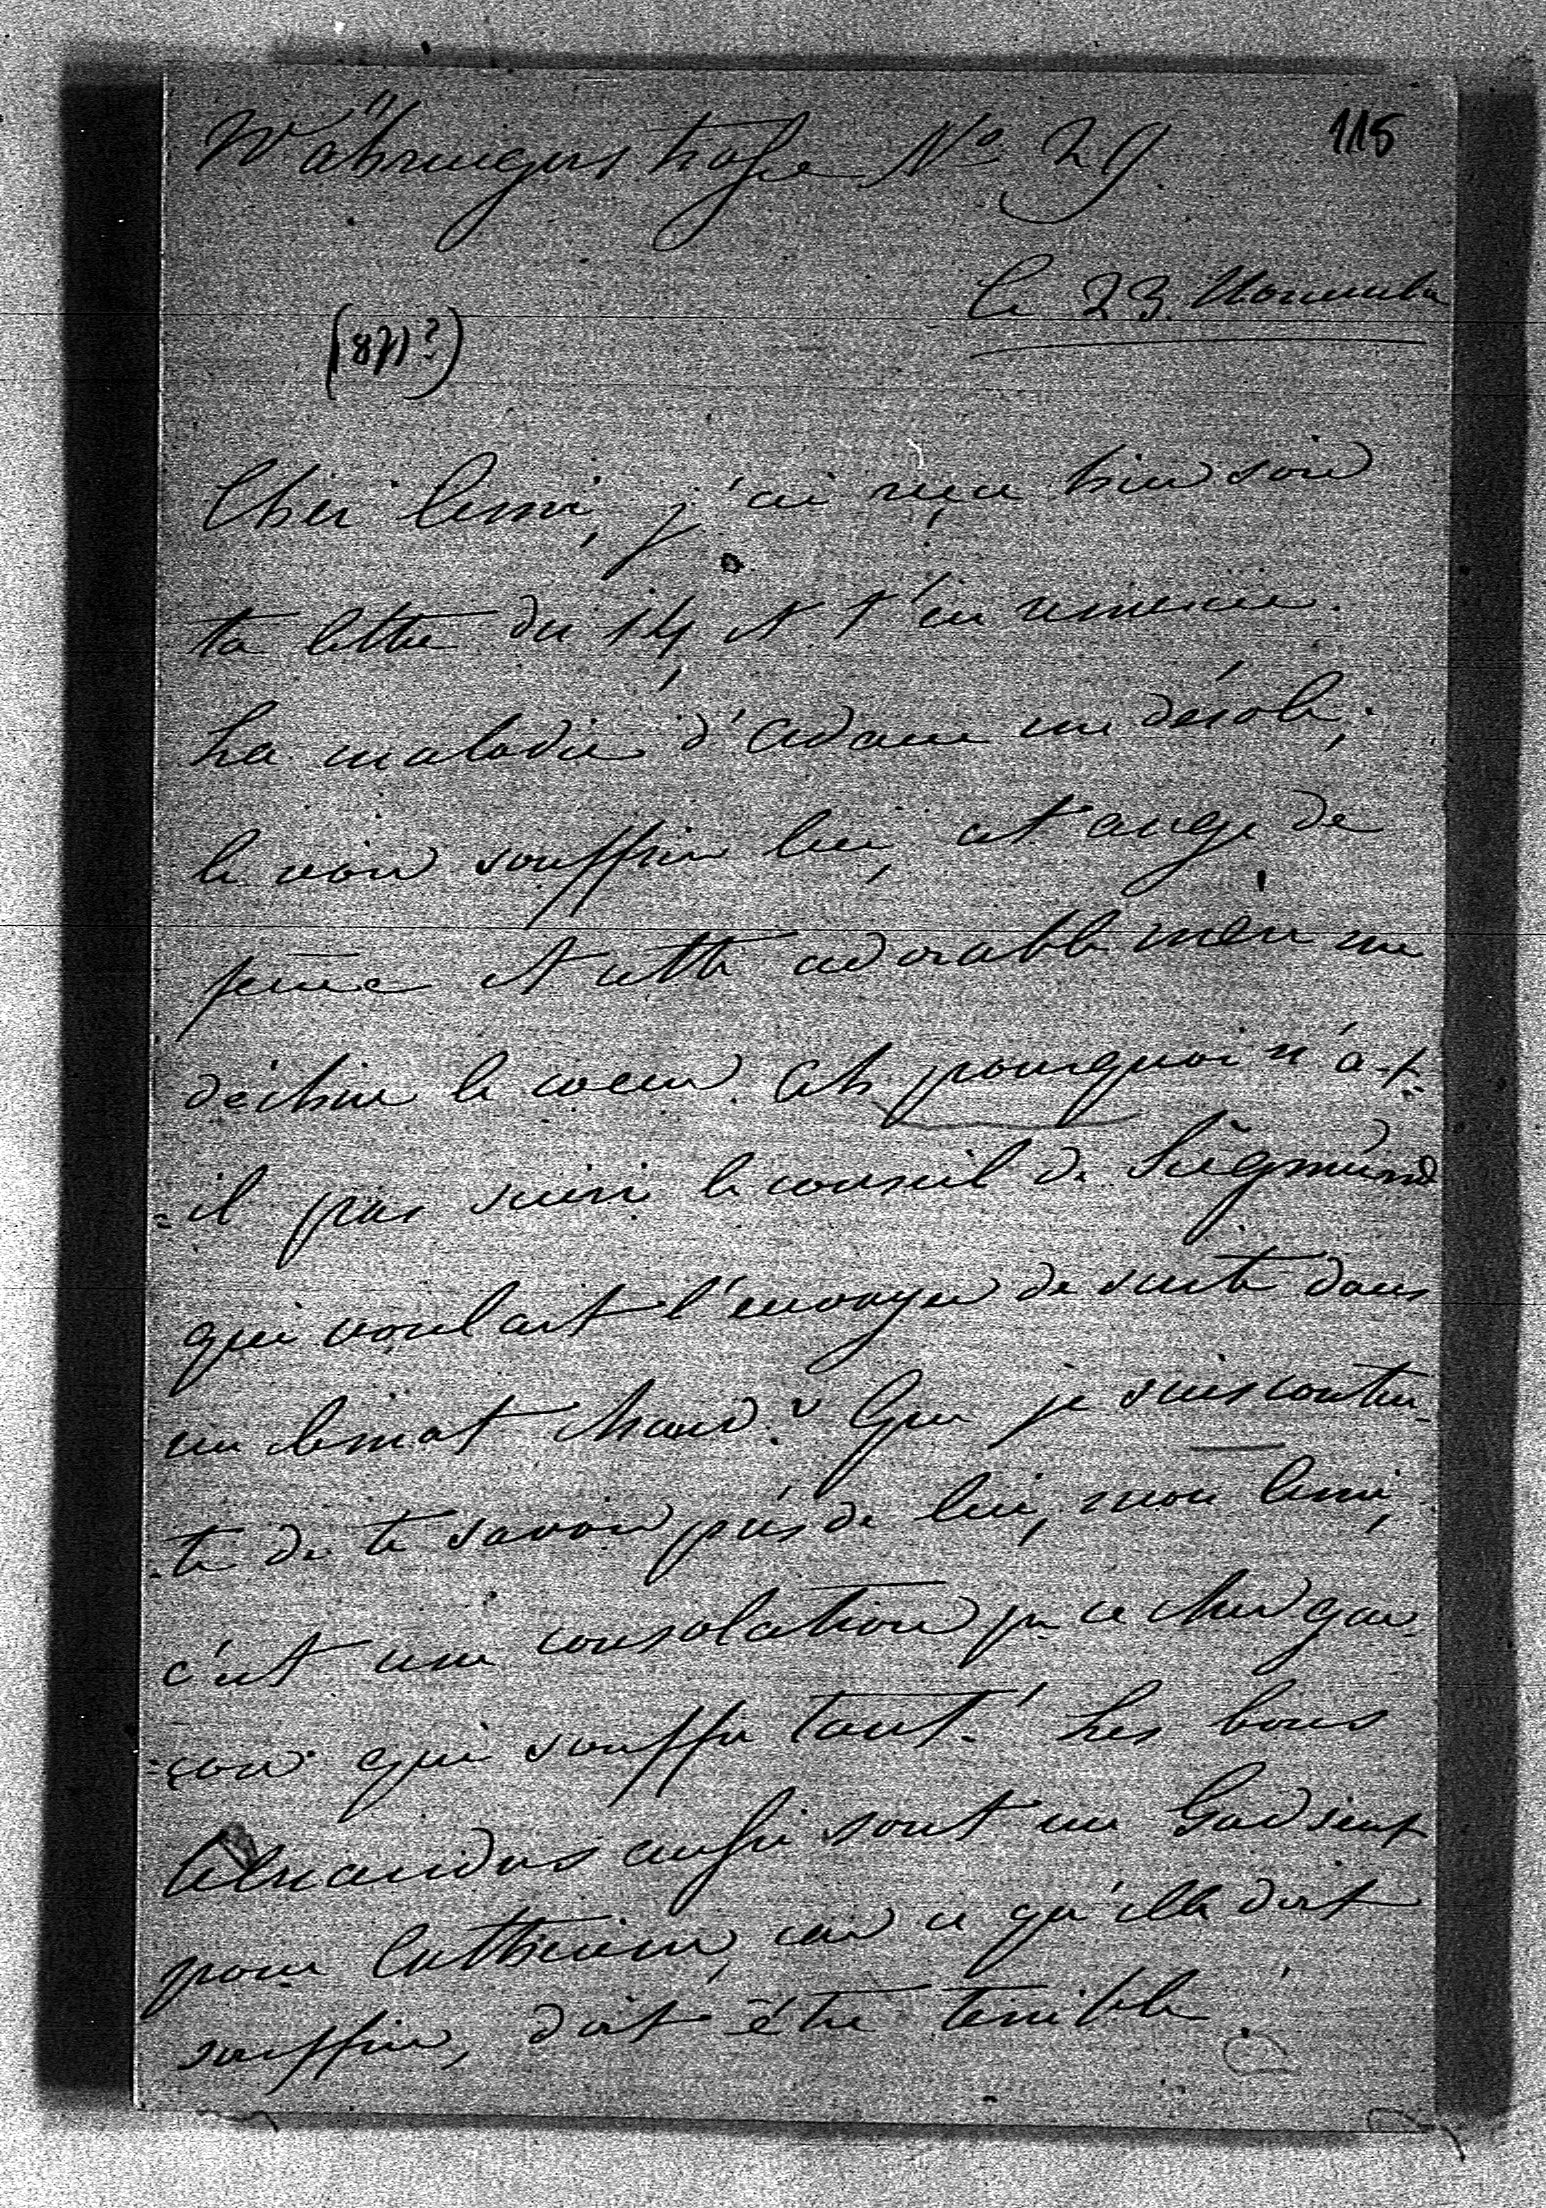 Währingerstraße No 29.
115
le 23. Novembre
(871?)
Cher Cesar, j'ai reçu hier soir
ta lettre du 14, et t'en remercie.
La maladie d'Adam me désole,
le voir souffrir lui, cet ange de
père et cette adorable mère me
déchire le coeur. Ah pourquoi n'a-t-
-il pas suivi le conseil de Siegmund
qui voulait l'envoyer de suite dans
un climat chaud? Que je suis conten-
-te de te savoir près de lui, mon
c'est une consolation pr ce cher gar-
-çon qui souffre tant! Les bons
aussi sont un Godsent
pour Catherine, car ce qu'elle doit
souffrir, doit être terrible!